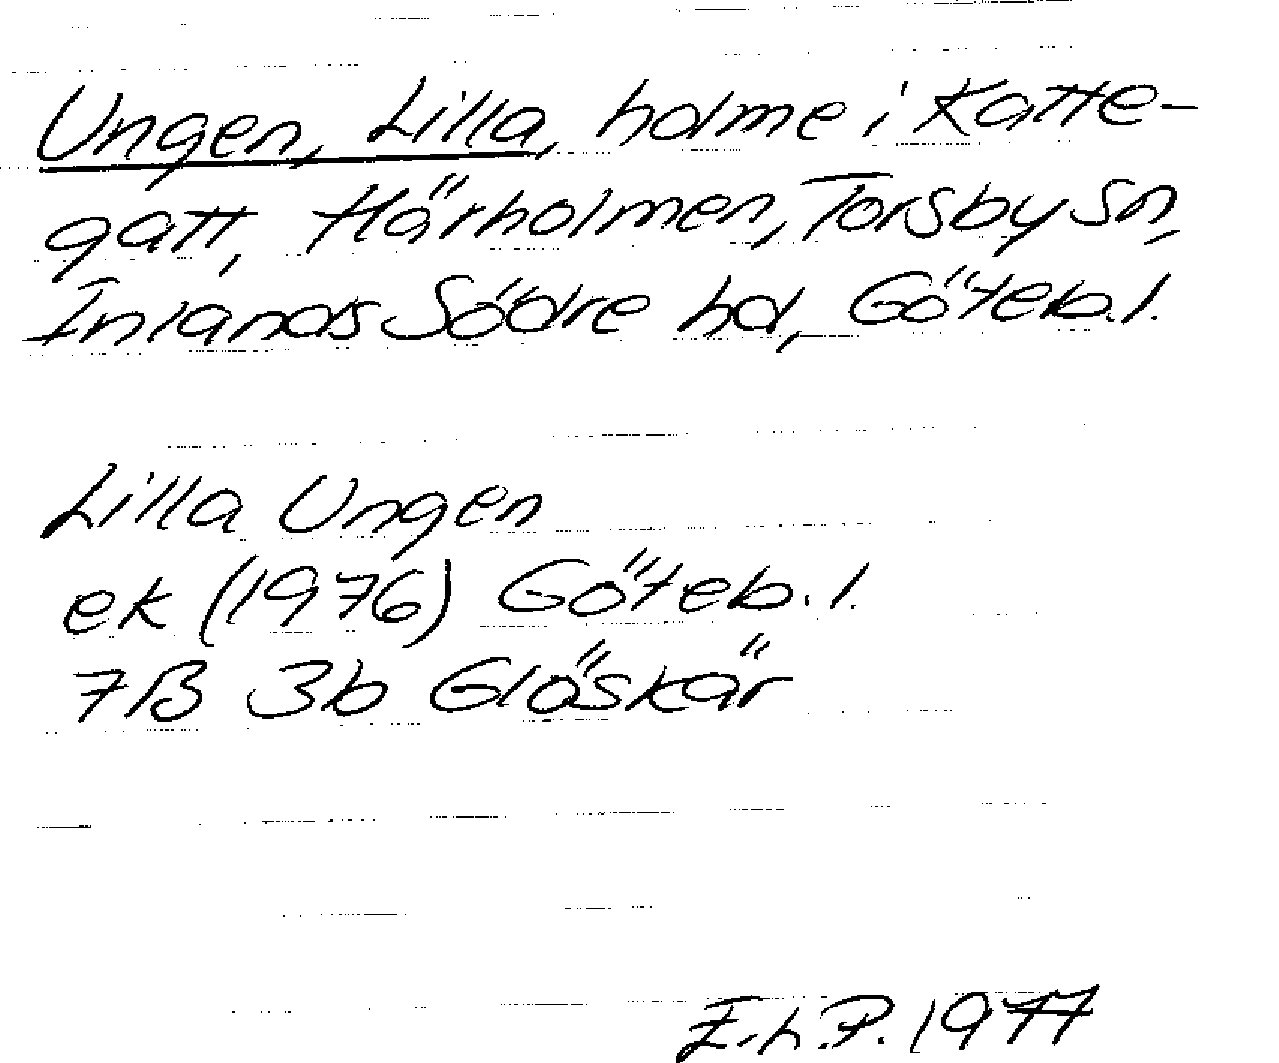 Ungen, Lilla, holme i Katte-
gatt, Härholmen, Torsby sn,
Inlands Södre hd, Göteb.l.
Lilla Ungen
ek (1976) Göteb.l.
7B 3b Glöskär
E.L.P. 1977